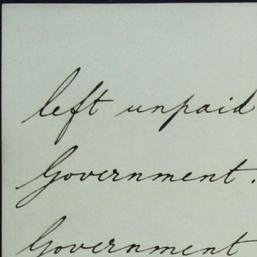 left unpaid
Government.
Government